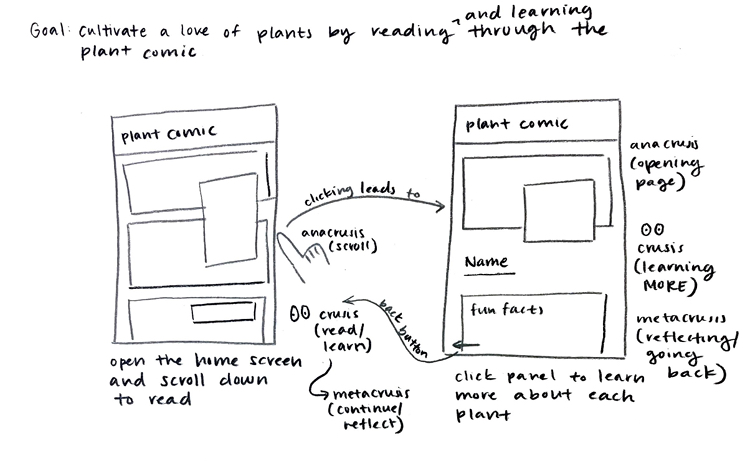 Goal: Cultivate a love of plants by reading ^ and learning through the
plant comic
plant comic
open the home screen
and scroll down
to read
clicking leads to
anacrusis
(scroll)
crusis
(read/
learn)
metacrusis
(continue/
reflect)
back button
plant comic
Name
fun facts
click panel to learn
more about each
plant
anacrusis
(opening
page)
crusis
(learning
MORE)
metacrusis
(reflecting/
going
back)